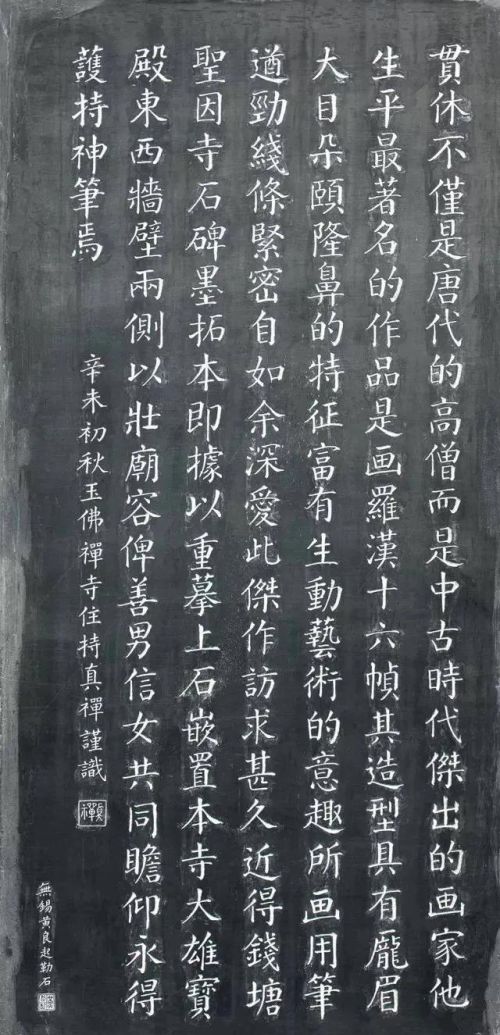 貫休不僅是唐代的高僧而是中古時代傑出的画家他
生平最著名的作品是画羅漢十六幀其造型具有龐眉
大目朵頤隆鼻的特征富有生動藝術的意趣所画用筆
遒勁綫條緊密自如余深愛此傑作訪求甚久近得錢塘
聖因寺石碑墨拓本即據以重摹上石嵌置本寺大雄寶
殿東西牆壁兩側以壯廟容俾善男信女共同瞻仰永得
護持神筆焉
辛未初秋玉佛禪寺住持真禪謹識
真禪
無錫黃良起勒石